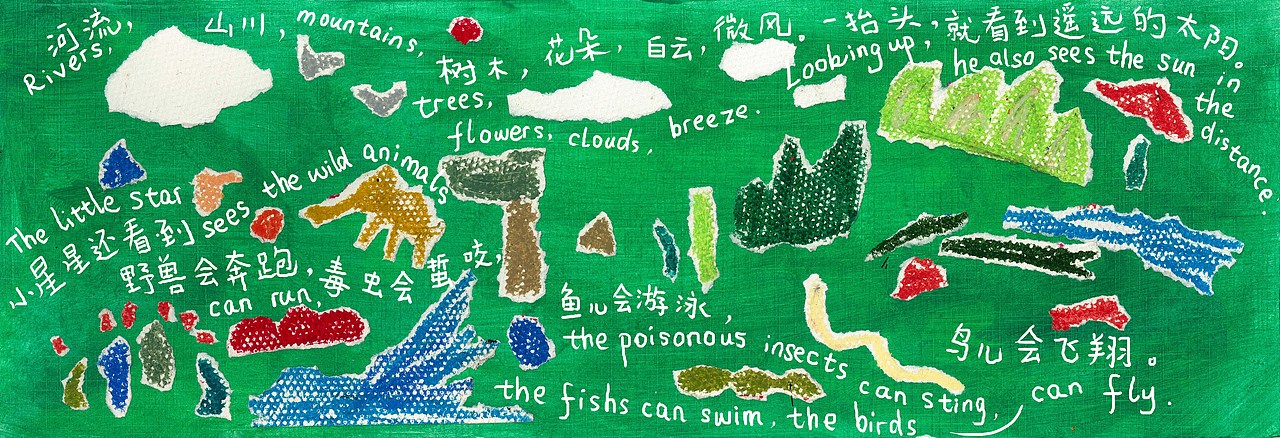 河流，山川，
Rivers, mountains,
树木，花朵，白云，微风。
trees, flowers, clouds, breeze.
一抬头，就看到遥远的太阳。
Looking up, he also sees the sun in the distance.
小星星还看到野兽会奔跑，毒虫会蜇咬，
The little star sees the wild animals can run,
鱼儿会游泳，
the poisonous insects can sting,
the fishs can swim, the birds can fly.
鸟儿会飞翔。